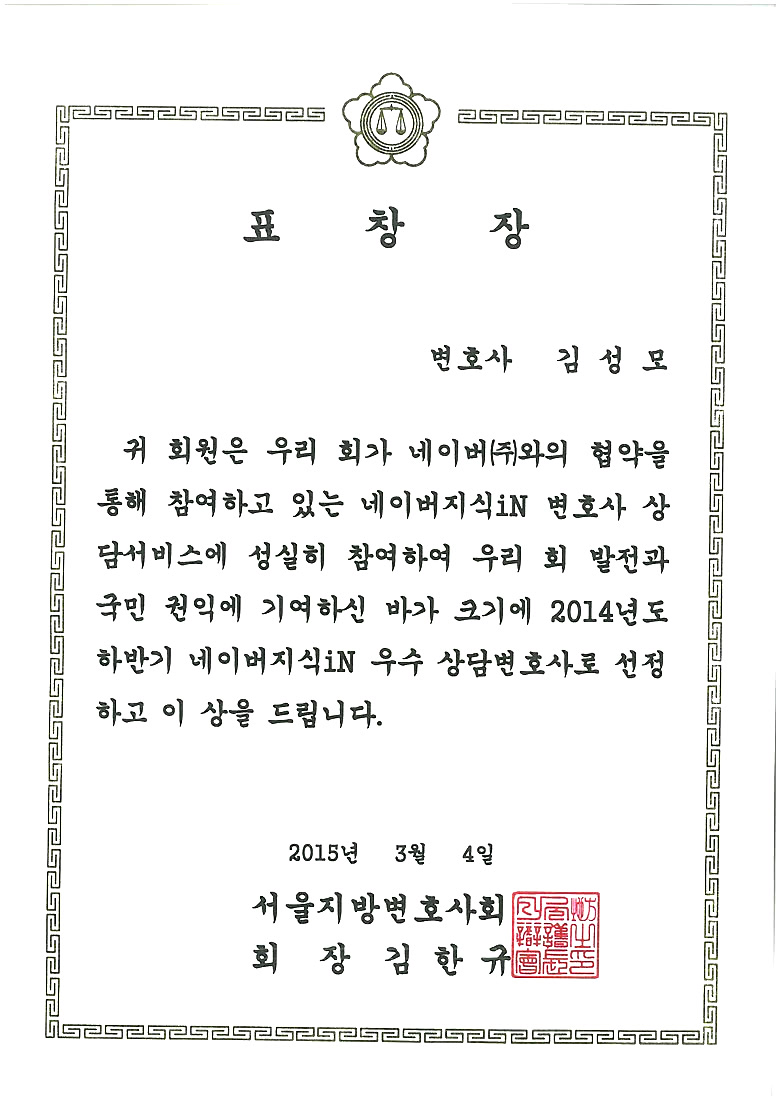 표 창 장
변호사 김 성 모
귀 회원은 우리 회가 네이버(주)와의 협약을
통해 참여하고 있는 네이버지식iN 변호사 상
담서비스에 성실히 참여하여 우리 회 발전과
국민 권익에 기여하신 바가 크기에 2014년도
하반기 네이버지식iN 우수 상담변호사로 선정
하고 이 상을 드립니다.
2015년 3월 4일
서울지방변호사회
회 장 김 한 규